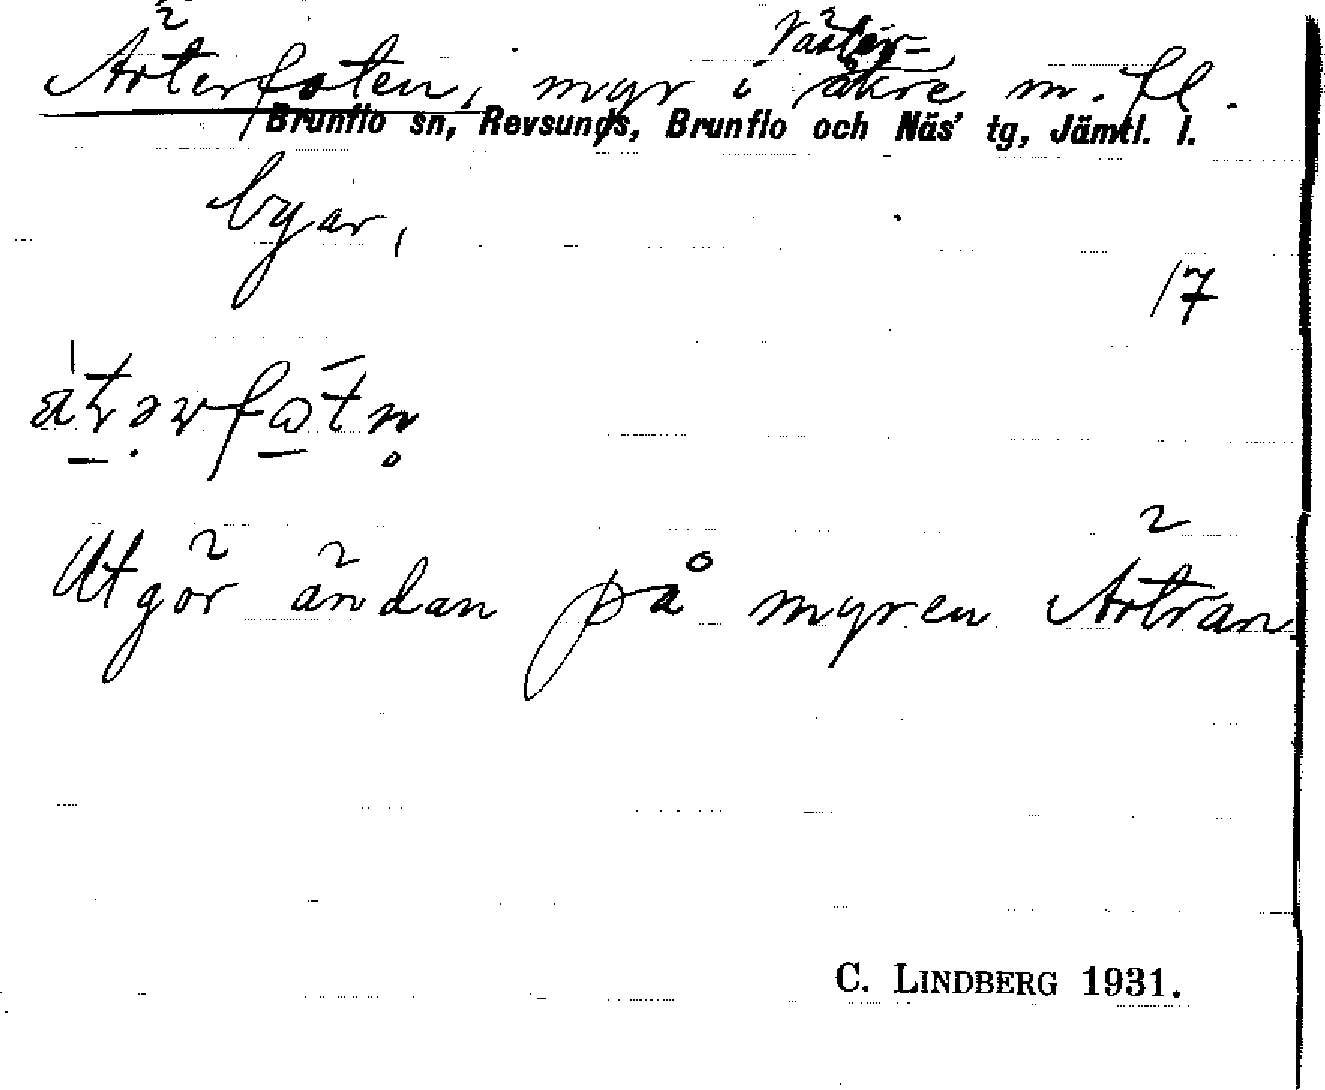 Ärterfoten, myr i Västeråkre m. fl.
Brunflo sn, Revsunds, Brunflo och Näs' tg, Jämtl. l.
byar,
17
Utgör ändan på myren Ärtran
C. LINDBERG 1931.